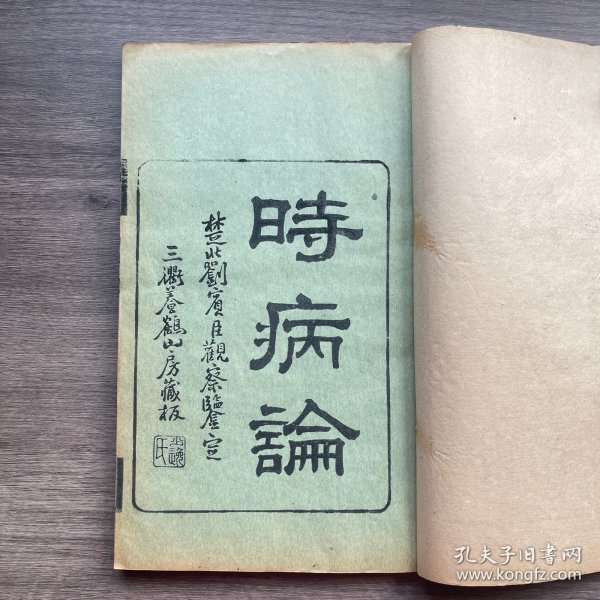 時病論
楚北劉賓臣觀察鑒定
三衢養鶴山房藏板
孔夫子旧书网
www.kongfz.com